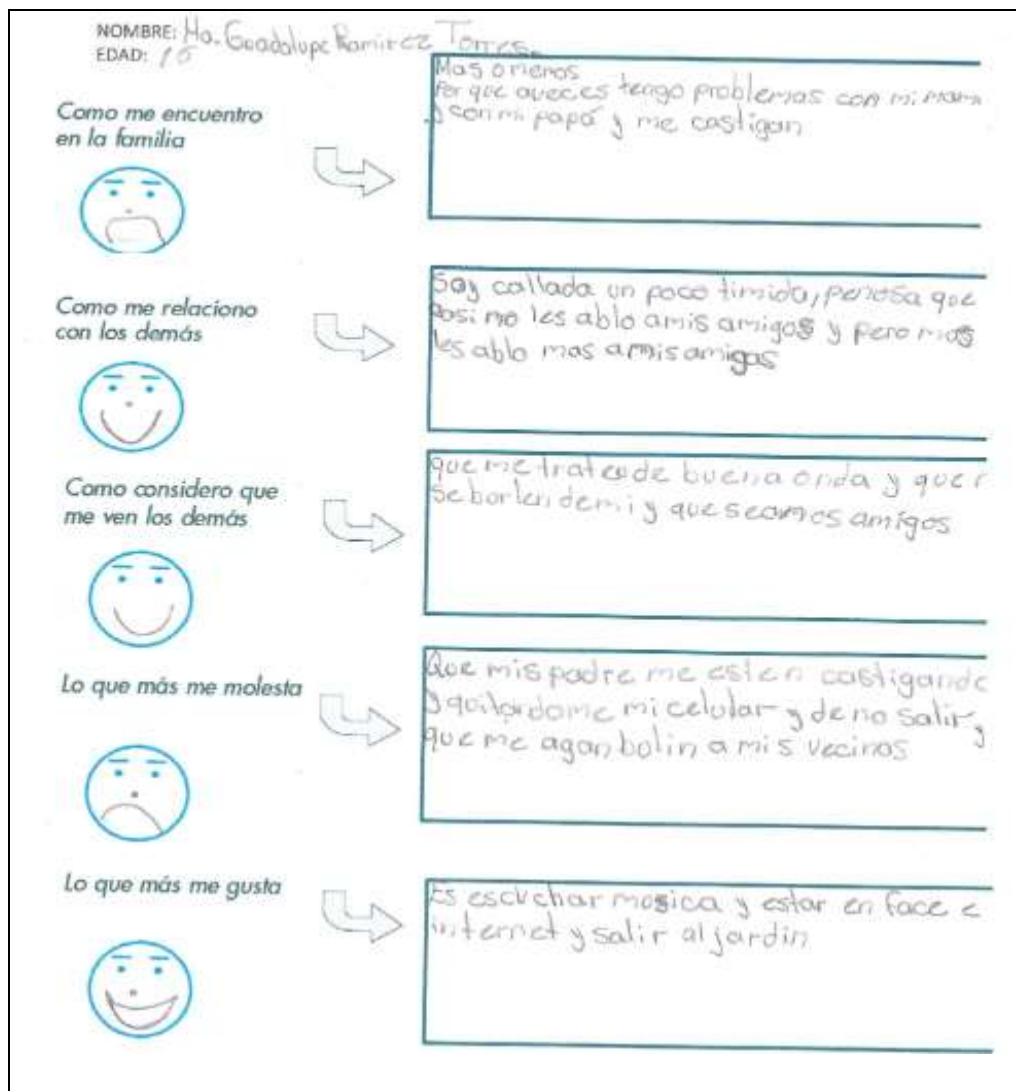 NOMBRE: Ma. Guadalupe Ramirez Torres.
EDAD: 15
Como me encuentro
en la familia
Mas o menos
Por que aveces tengo problemas con mi mam
y con mi papá y me castigan
Como me relaciono
con los demás
Soy callada un poco timida, penosa que
casi no les ablo amis amigos y pero mas
les ablo mas amis amigas
Como considero que
me ven los demás
que me traten de buena onda y que
se borlen demi y que seamos amigos
Lo que más me molesta
Que mis padre me esten castigando
y quitandome mi celular y de no salir y
que me agan bolin a mis vecinos
Lo que más me gusta
Es escuchar mosica y estar en face e
internet y salir al jardin